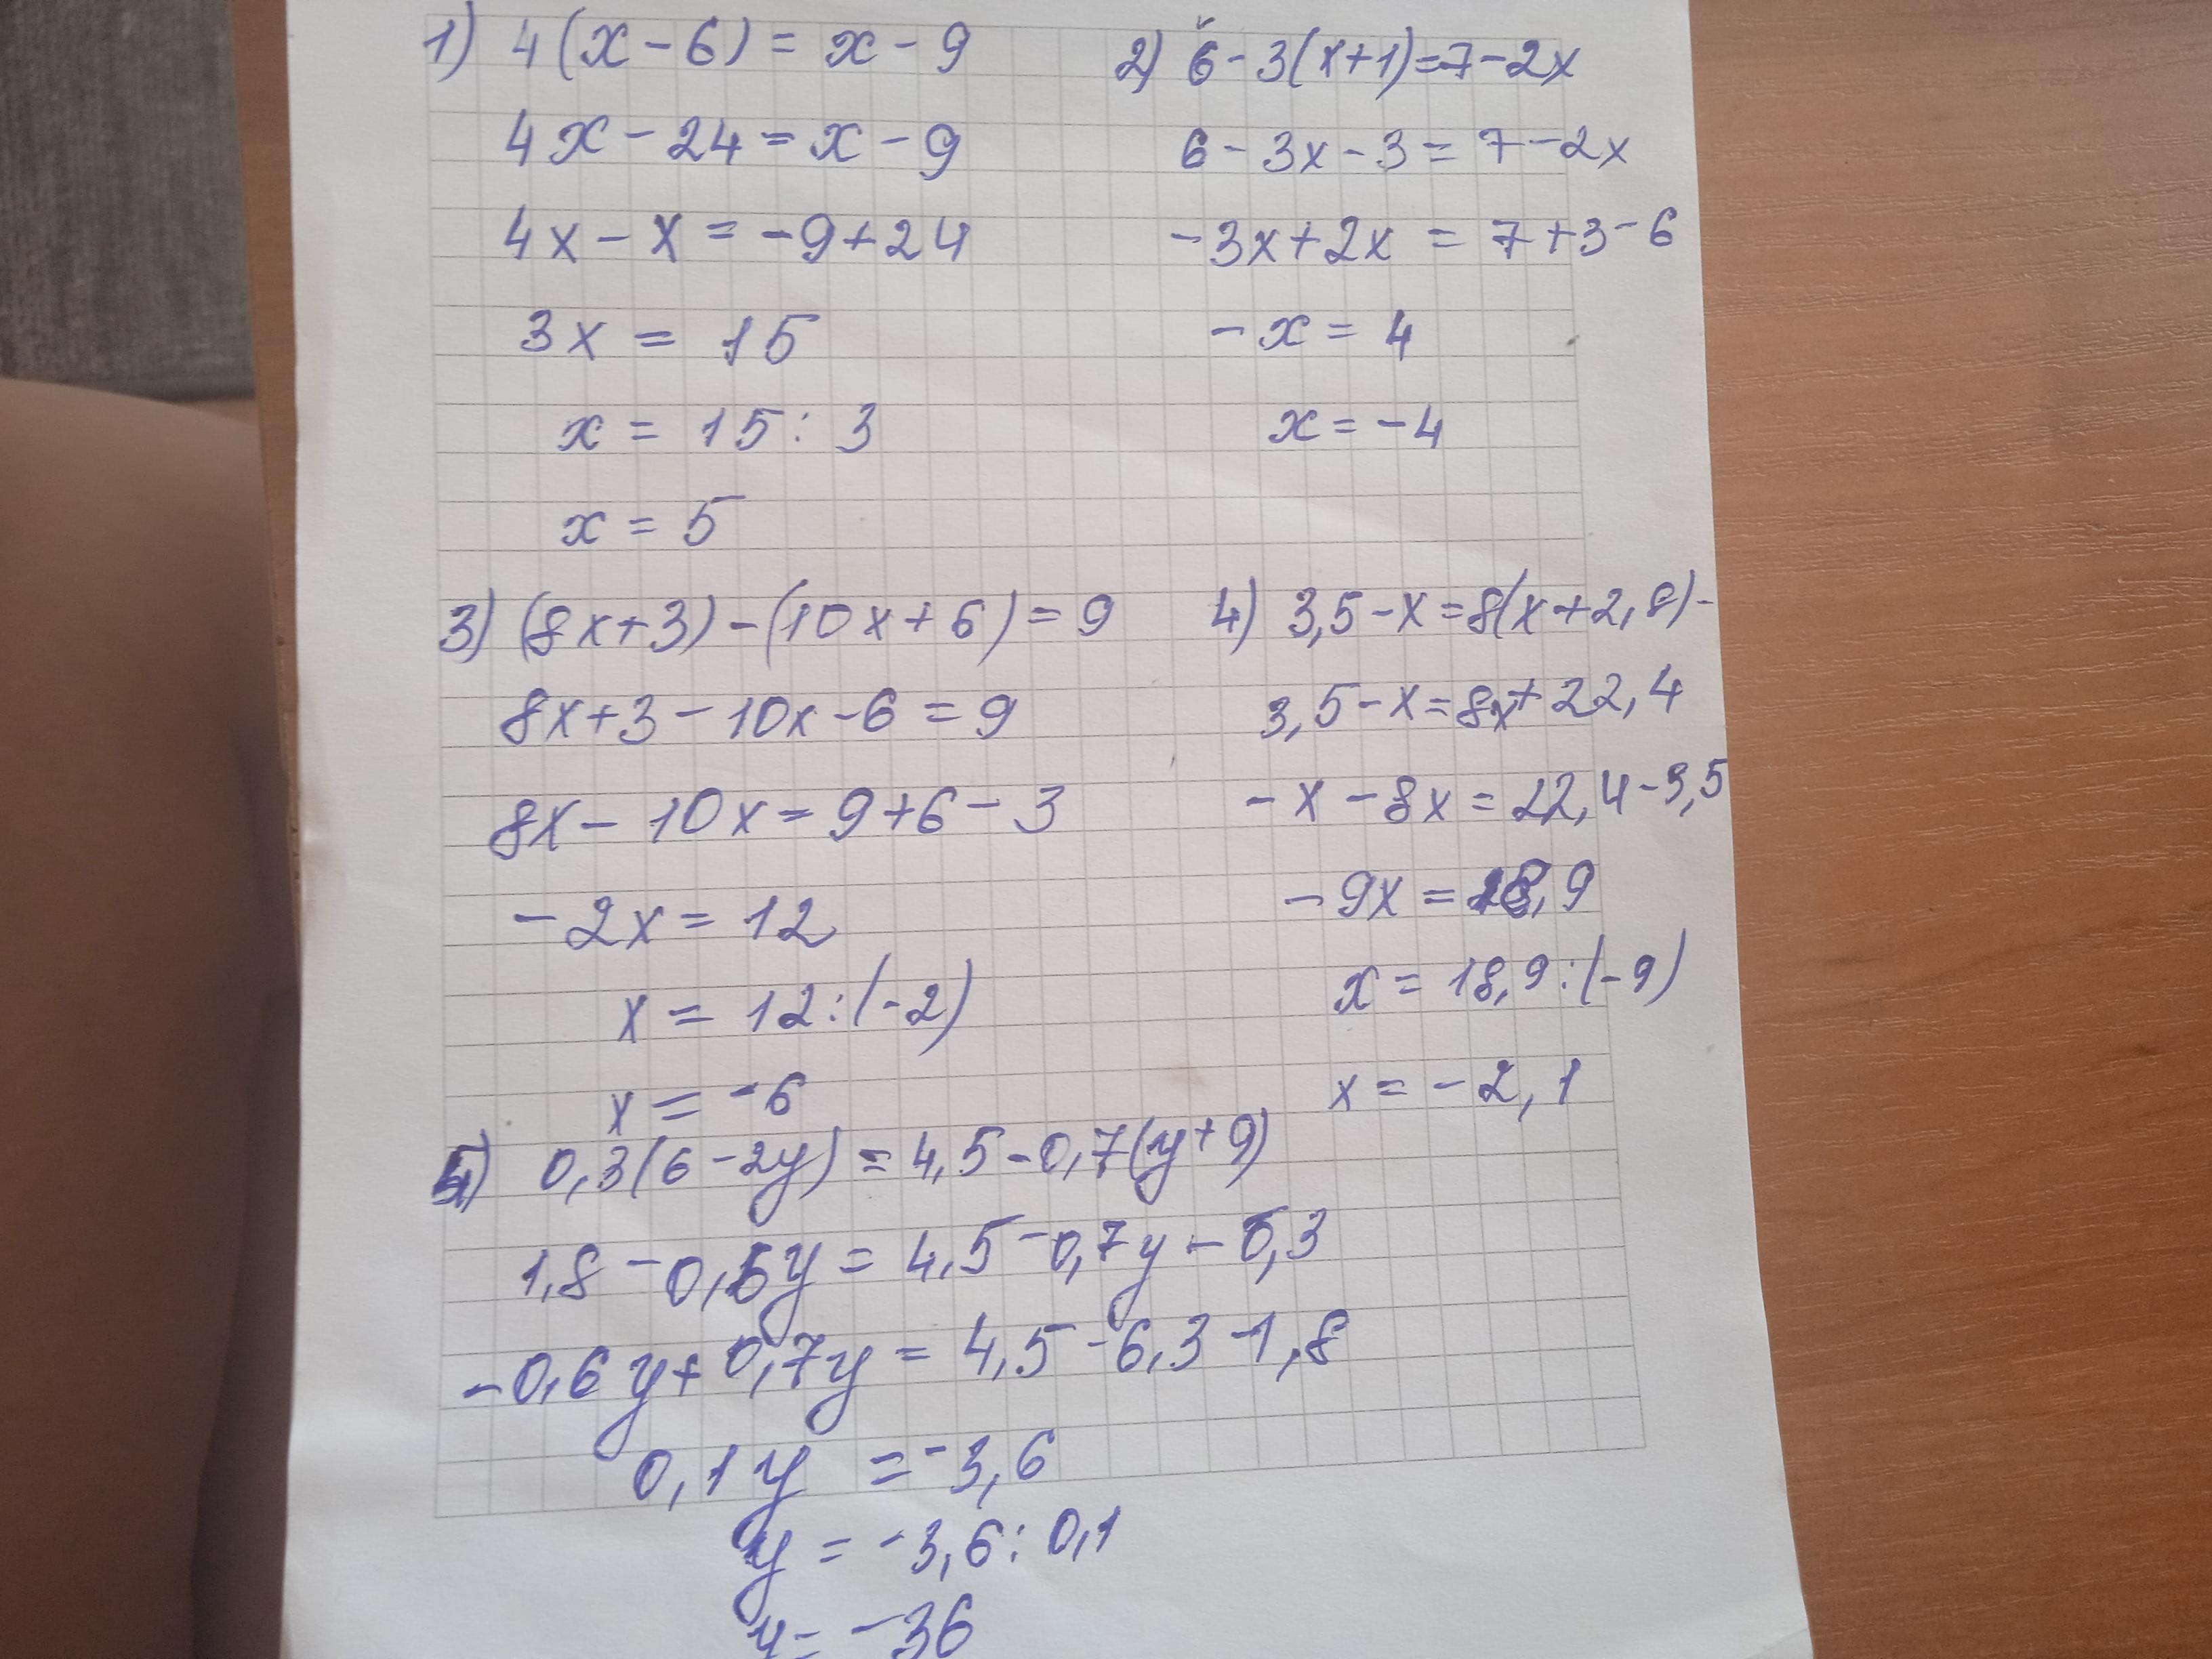 1) 4(x - 6) = x - 9
4x - 24 = x - 9
4x - x = -9 + 24
3x = 15
x = 15 : 3
x = 5
2) 6 - 3(x+1)=7-2x
6 - 3x - 3 = 7 - 2x
-3x+2x = 7+3-6
-x = 4
x = -4
3) (8x+3) - (10x+6) = 9
8x+3 - 10x - 6 = 9
8x - 10x = 9+6 - 3
-2x = 12
x = 12:(-2)
x = -6
4) 3,5 - x = 8(x+2,8) -
3,5 - x = 8x + 22,4
-x - 8x = 22,4 - 3,5
-9x = 18,9
x = 18,9:(-9)
x = -2,1
5) 0,3(6 - 2y) = 4,5 - 0,7(y+9)
1,8 - 0,6y = 4,5 - 0,7y - 6,3
-0,6y + 0,7y = 4,5 - 6,3 - 1,8
0,1y = -3,6
y = -3,6 : 0,1
y = -36